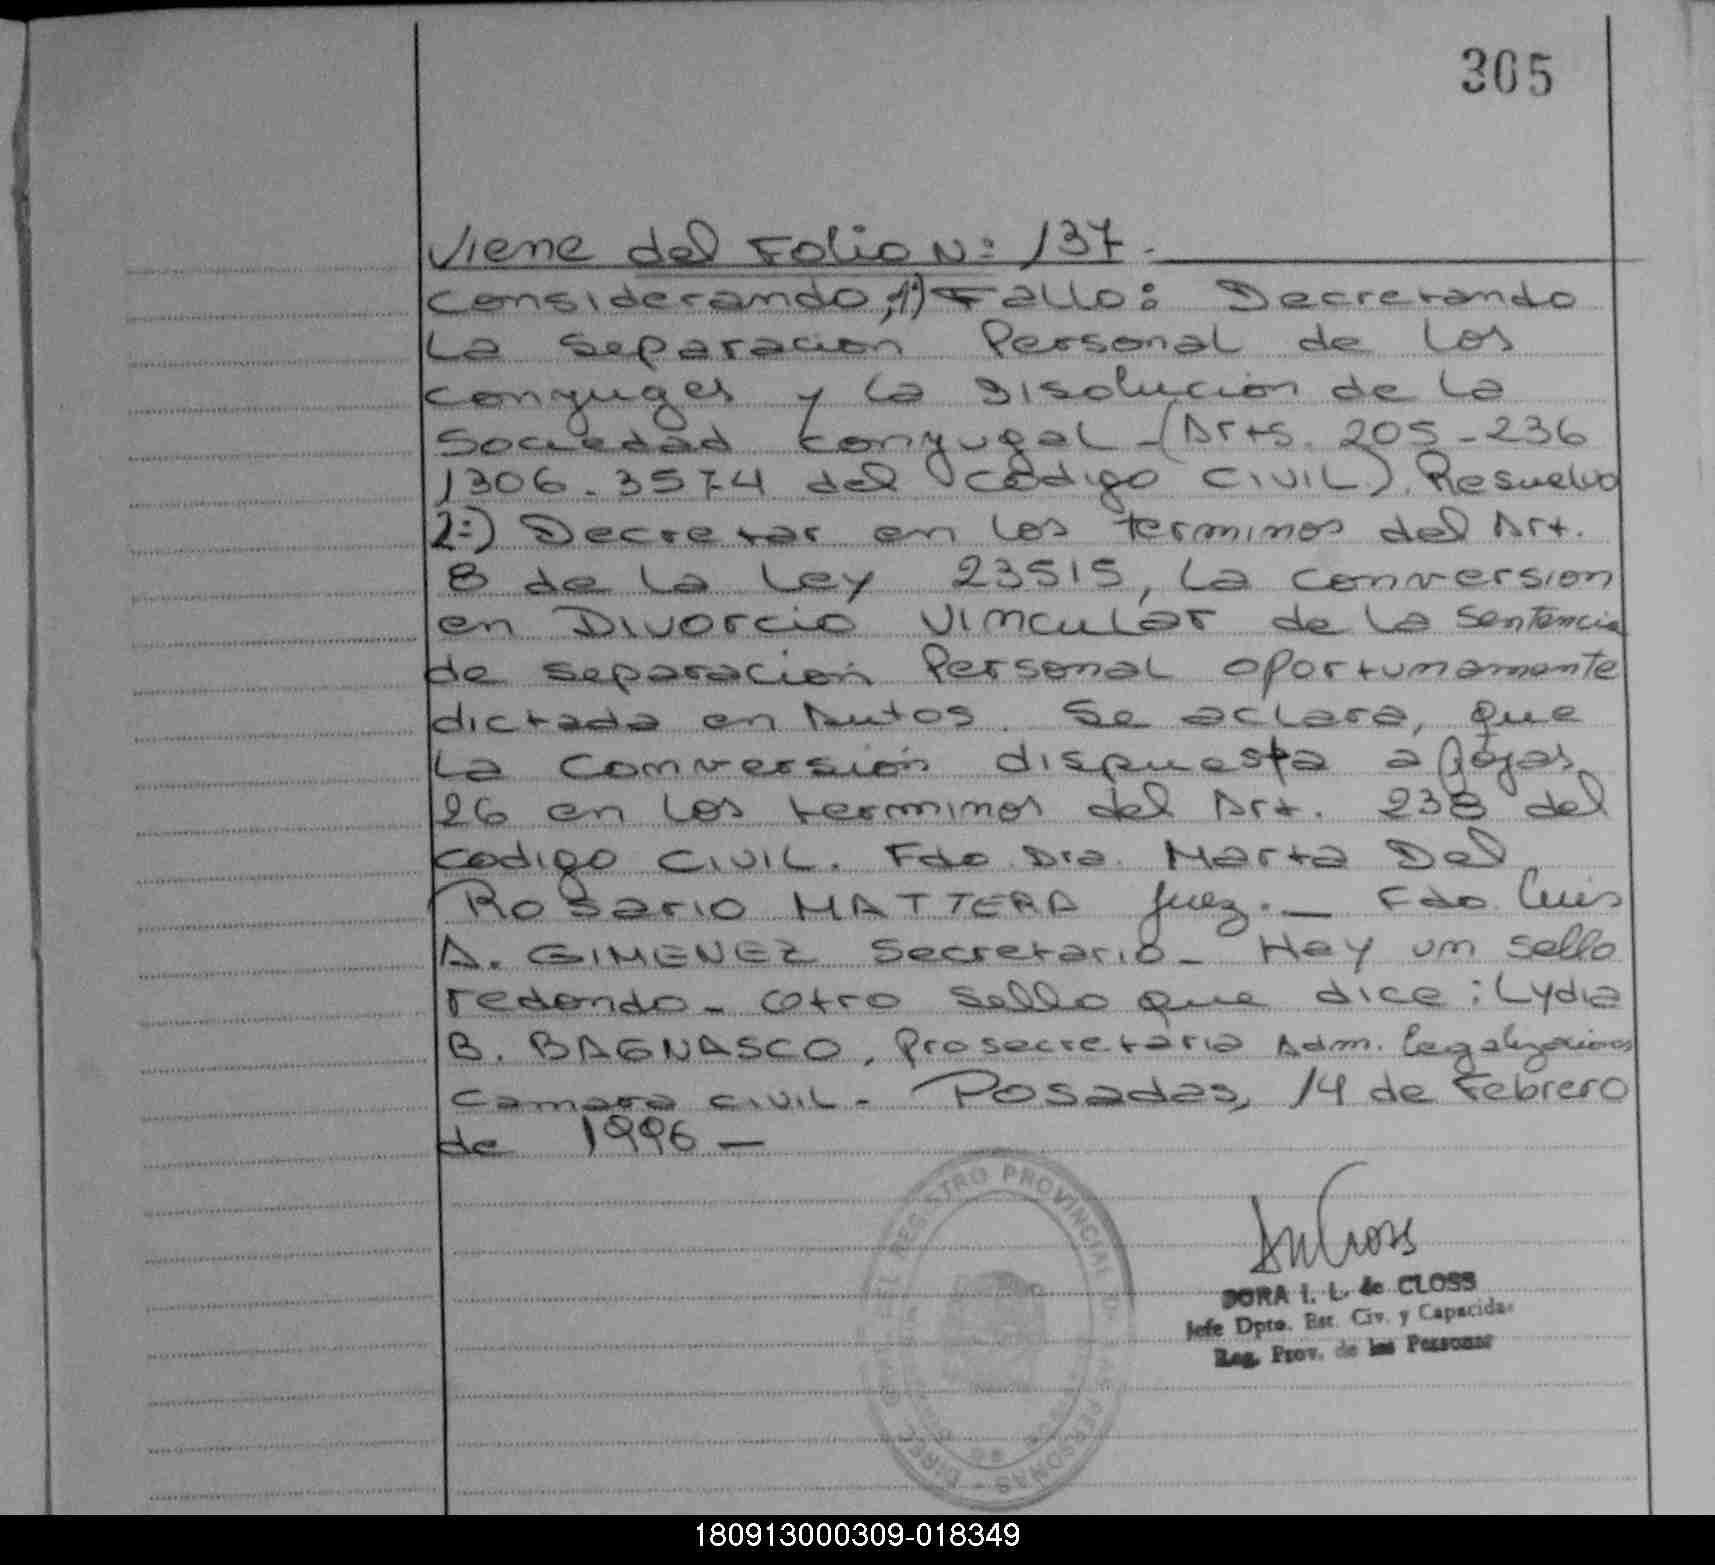 305
Viene del Folio N: 137.
Considerando, 1º) Fallo: Decretando
La Separacion Personal de los
Conyuges y la Disolucion de la
Sociedad Conyugal - (Arts. 205 - 236
1306. 3574 del Codigo Civil). Resuelvo
2:) Decretar en los terminos del Art.
8 de la Ley 23515, la conversion
en Divorcio Vincular de la Sentencia
de separacion Personal oportunamente
dictada en Autos. Se aclara, que
la conversión dispuesta a fojas
26 en los terminos del Art. 238 del
codigo civil. Fdo Dra. Marta Del
Rosario MATTERA Juez. - Fdo. Luis
A. GIMENEZ Secretario - Hay un sello
redondo - Otro sello que dice: Lydia
B. BAGNASCO, Prosecretaria Adm. Legalizaciones
Camara civil. - Posadas, 14 de Febrero
de 1996 -
DORA I. L. de CLOSS
Jefe Dpto. Est. Civ. y Capacidad
Reg. Prov. de las Personas
REGISTRO PROVINCIAL D LAS PERSONAS
180913000309-018349